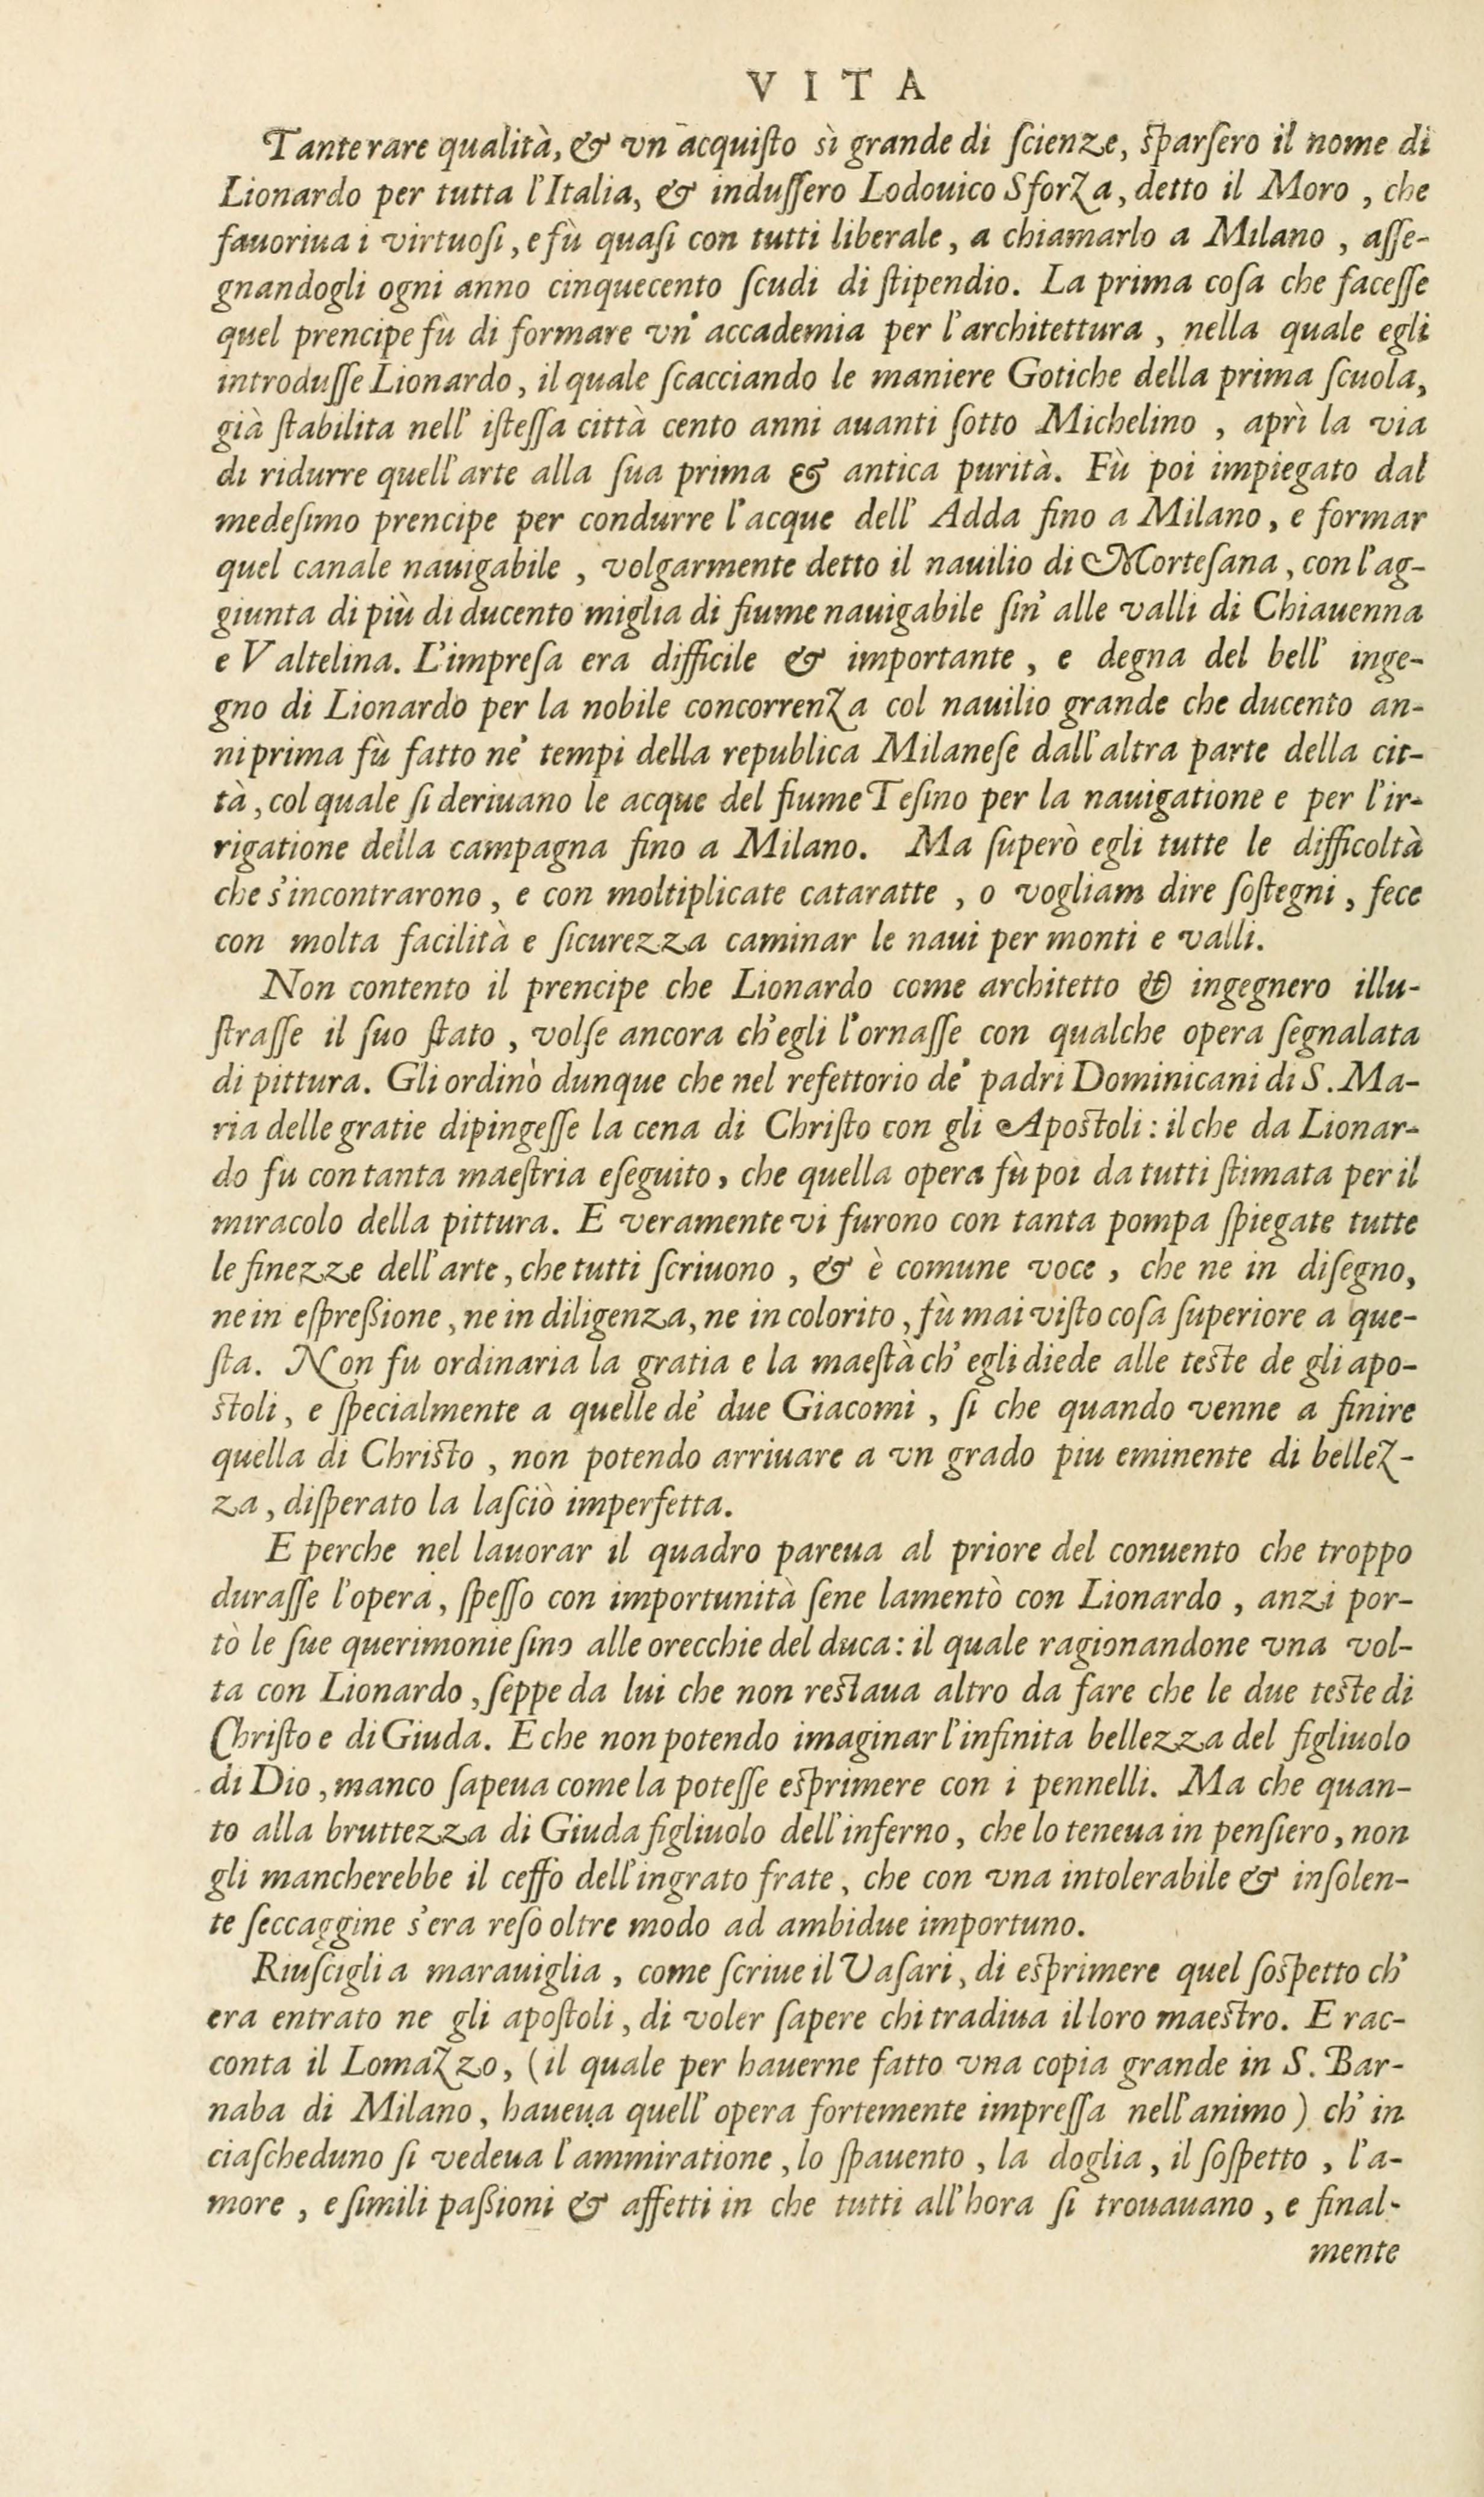 VITA
Tante rare qualità, & vn acquiſto sì grande di ſcienze, ſparſero il nome di
Lionardo per tutta l'Italia, & induſſero Lodouico Sforza, detto il Moro, che
fauoriua i virtuoſi, e fù quaſi con tutti liberale, a chiamarlo a Milano, aſſe-
gnandogli ogni anno cinquecento ſcudi di ſtipendio. La prima coſa che faceſſe
quel prencipe fù di formare vn' accademia per l'architettura, nella quale egli
introduſſe Lionardo, il quale ſcacciando le maniere Gotiche della prima ſcuola,
già ſtabilita nell' iſteſſa città cento anni auanti ſotto Michelino, aprì la via
di ridurre quell'arte alla ſua prima & antica purità. Fù poi impiegato dal
medeſimo prencipe per condurre l'acque dell' Adda fino a Milano, e formar
quel canale nauigabile, volgarmente detto il nauilio di Morteſana, con l'ag-
giunta di più di ducento miglia di fiume nauigabile ſin' alle valli di Chiauenna
e Valtelina. L'impreſa era difficile & importante, e degna del bell' inge-
gno di Lionardo per la nobile concorrenza col nauilio grande che ducento an-
ni prima fù fatto ne' tempi della republica Milaneſe dall'altra parte della cit-
tà, col quale ſi deriuano le acque del fiume Teſino per la nauigatione e per l'ir-
rigatione della campagna fino a Milano. Ma ſuperò egli tutte le difficoltà
che s'incontrarono, e con moltiplicate cataratte, o vogliam dire ſoſtegni, fece
con molta facilità e ſicurezza caminar le naui per monti e valli.
Non contento il prencipe che Lionardo come architetto & ingegnero illu-
ſtraſſe il ſuo ſtato, volſe ancora ch'egli l'ornaſſe con qualche opera ſegnalata
di pittura. Gli ordinò dunque che nel refettorio de' padri Dominicani di S. Ma-
ria delle gratie dipingeſſe la cena di Chriſto con gli Apoſtoli: il che da Lionar-
do fu con tanta maeſtria eſeguito, che quella opera fù poi da tutti ſtimata per il
miracolo della pittura. E veramente vi furono con tanta pompa ſpiegate tutte
le finezze dell'arte, che tutti ſcriuono, & è comune voce, che ne in diſegno,
ne in eſpreßione, ne in diligenza, ne in colorito, fù mai viſto coſa ſuperiore a que-
ſta. Non fu ordinaria la gratia e la maeſtà ch' egli diede alle teſte de gli apo-
ſtoli, e ſpecialmente a quelle de' due Giacomi, ſi che quando venne a finire
quella di Chriſto, non potendo arriuare a vn grado piu eminente di bellez-
za, diſperato la laſciò imperfetta.
E perche nel lauorar il quadro pareua al priore del conuento che troppo
duraſſe l'opera, ſpeſſo con importunità ſene lamentò con Lionardo, anzi por-
tò le ſue querimonie ſino alle orecchie del duca: il quale ragionandone vna vol-
ta con Lionardo, ſeppe da lui che non reſtaua altro da fare che le due teſte di
Chriſto e di Giuda. E che non potendo imaginar l'infinita bellezza del figliuolo
di Dio, manco ſapeua come la poteſſe eſprimere con i pennelli. Ma che quan-
to alla bruttezza di Giuda figliuolo dell'inferno, che lo teneua in penſiero, non
gli mancherebbe il ceffo dell'ingrato frate, che con vna intolerabile & inſolen-
te ſeccaggine s'era reſo oltre modo ad ambidue importuno.
Riuſcigli a marauiglia, come ſcriue il Vaſari, di eſprimere quel ſoſpetto ch'
era entrato ne gli apoſtoli, di voler ſapere chi tradiua il loro maeſtro. E rac-
conta il Lomazzo, (il quale per hauerne fatto vna copia grande in S. Bar-
naba di Milano, haueua quell' opera fortemente impreſſa nell'animo) ch' in
ciaſcheduno ſi vedeua l'ammiratione, lo ſpauento, la doglia, il ſoſpetto, l'a-
more, e ſimili paßioni & affetti in che tutti all'hora ſi trouauano, e final-
mente